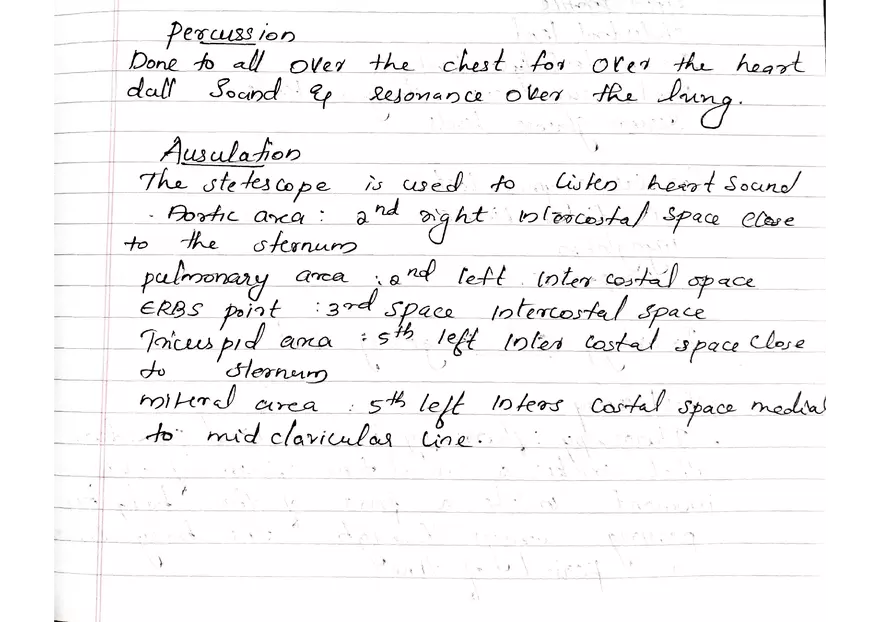 Percussion
Done to all over the chest for over the heart
dall Sound & resonance over the lung.
Ausulation
The stetescope is used to listen heart Sound
Aortic area : 2nd right intercostal Space close
to the sternum
pulmonary area : 2nd left inter costal space
ERBS point : 3rd space intercostal space
Tricuspid area : 5th left inter costal space close
to sternum
miteral area : 5th left inters costal space medial
to mid clavicular line.